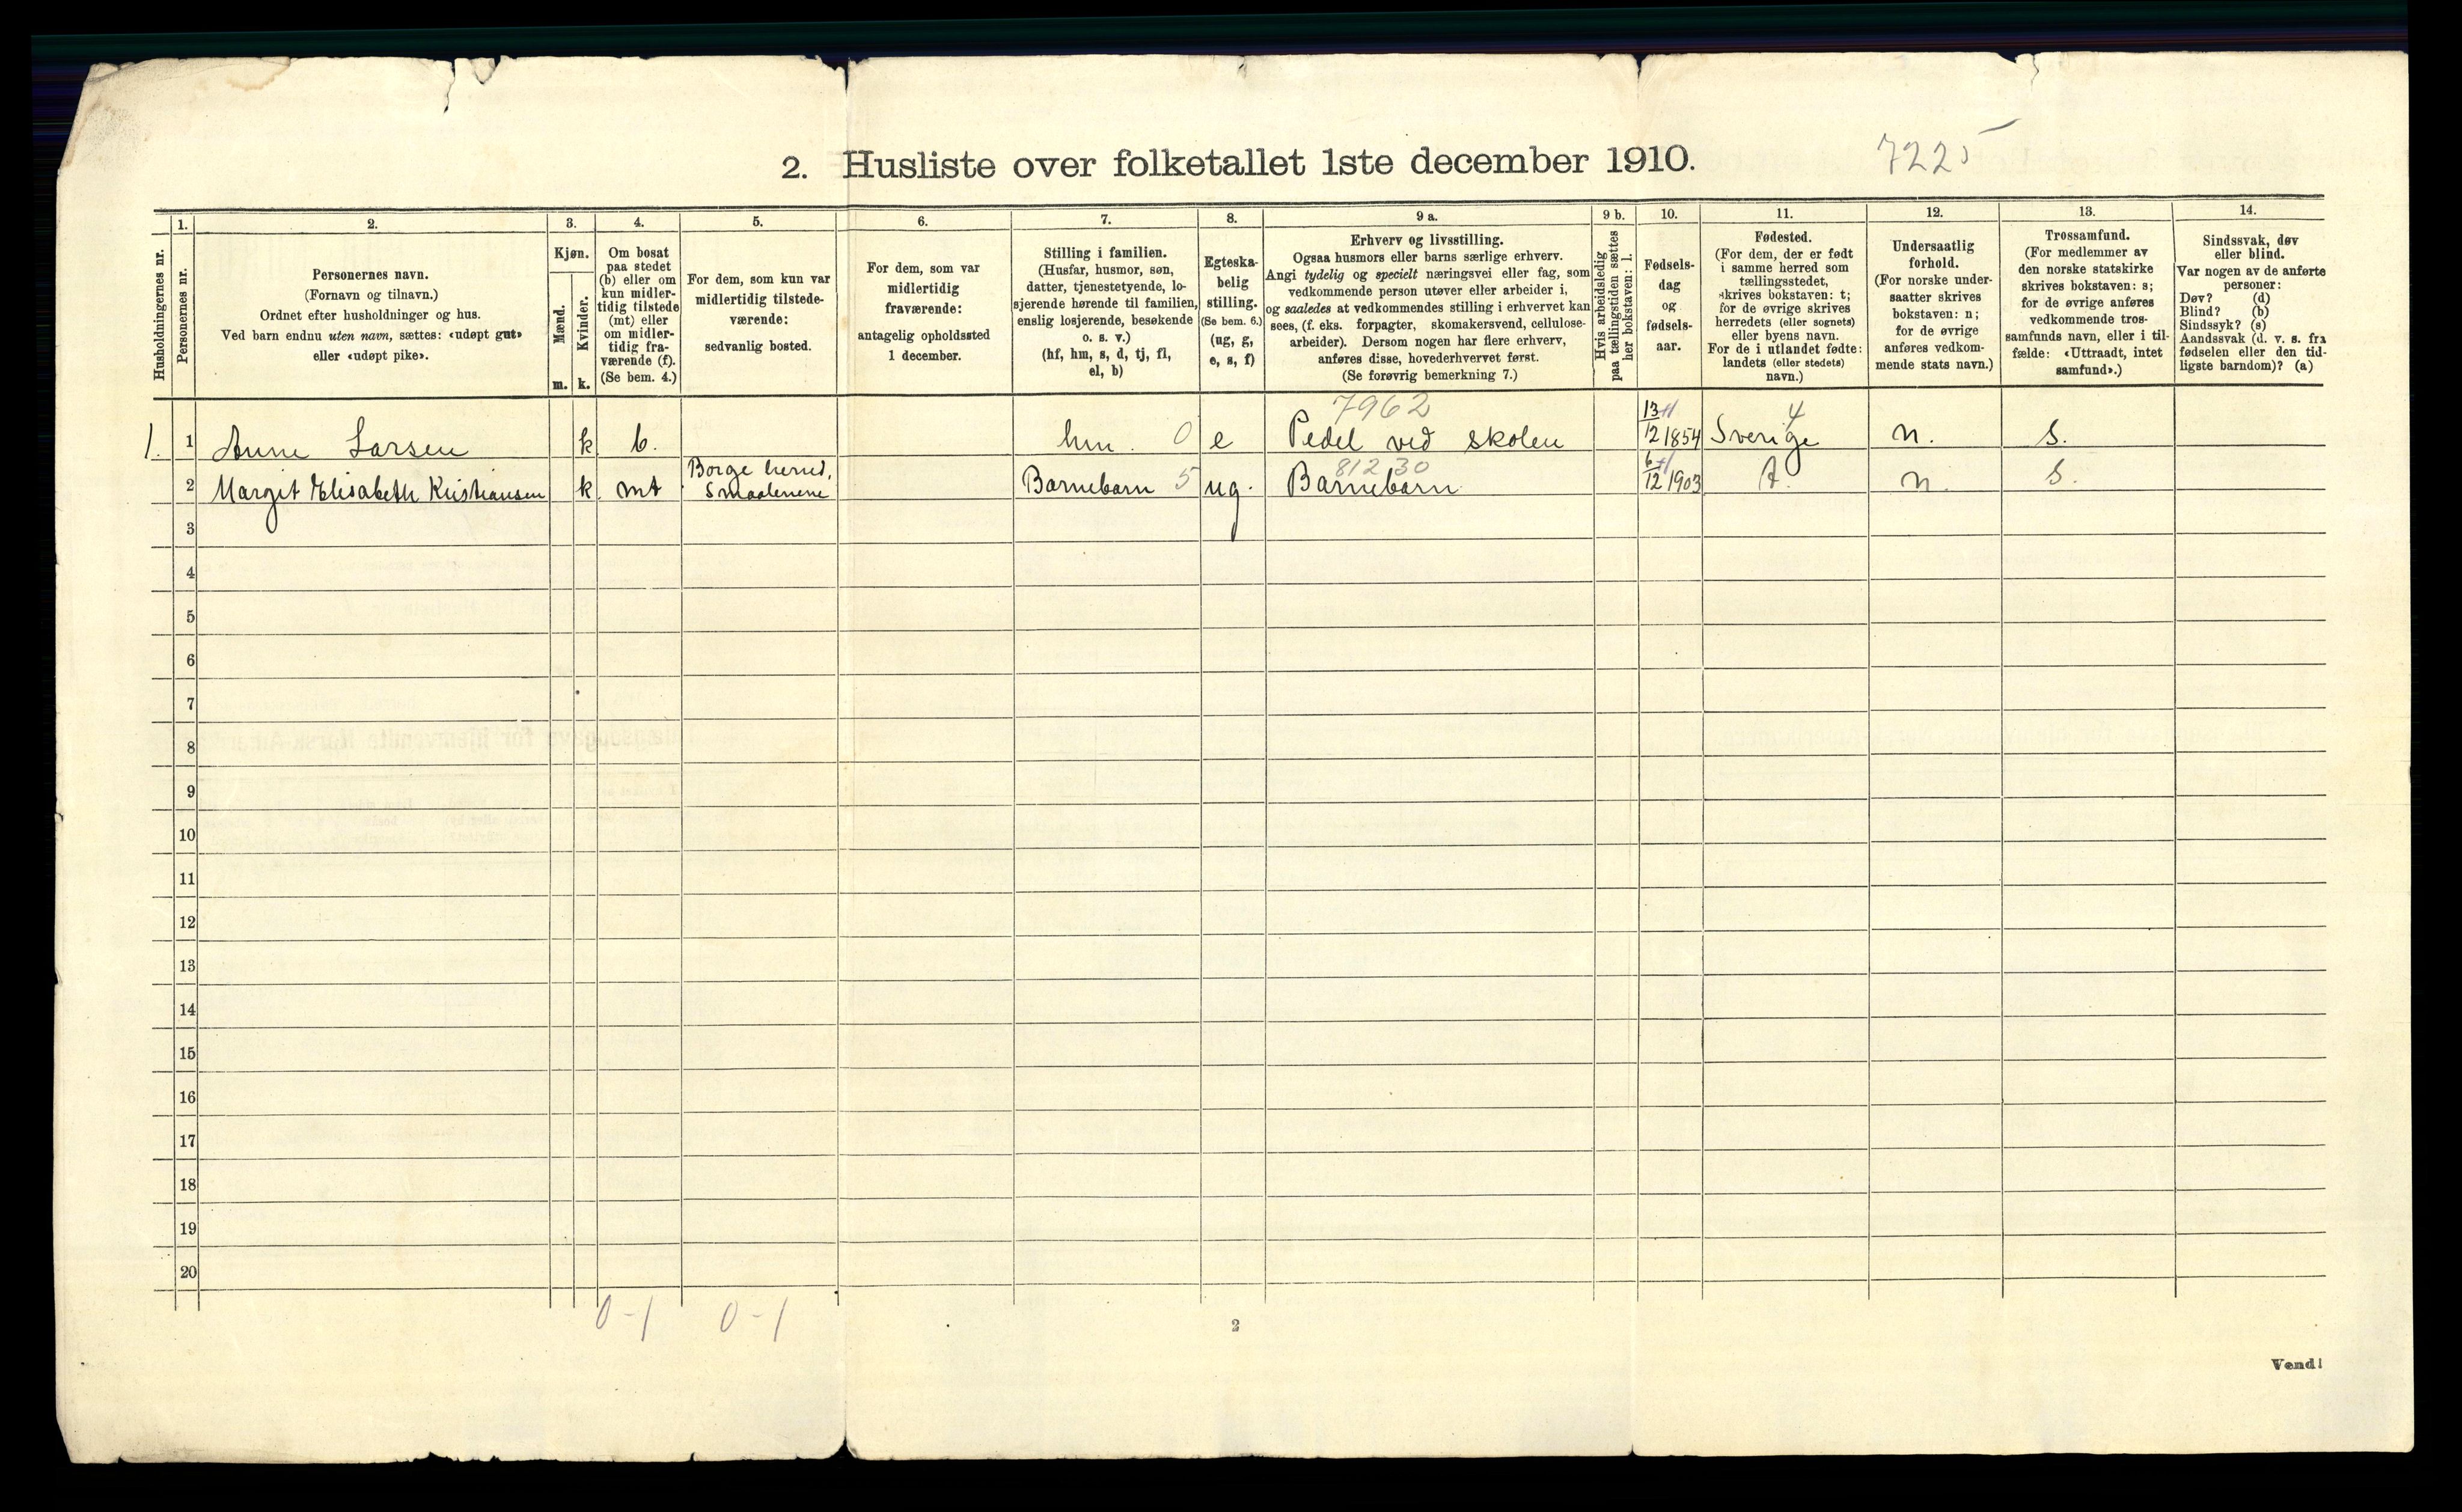 2. Husliste over folketallet 1ste december 1910.
7225
1. 2. 3. 4. 5. 6. 7. 8. 9 a. 9 b. 10. 11. 12. 13. 14.
Husholdningernes nr.
Personernes nr.
Personernes navn.
(Fornavn og tilnavn.)
Ordnet efter husholdninger og hus.
Ved barn endnu uten navn, sættes: «udøpt gut»
eller «udøpt pike».
Kjøn.
Mænd.
Kvinder.
m. k.
Om bosat
paa stedet
(b) eller om
kun midler-
tidig tilstede
(mt) eller
om midler-
tidig fra-
værende (f).
(Se bem. 4.)
For dem, som kun var
midlertidig tilstede-
værende:
sedvanlig bosted.
For dem, som var
midlertidig
fraværende:
antagelig opholdssted
1 december.
Stilling i familien.
(Husfar, husmor, søn,
datter, tjenestetyende, lo-
sjerende hørende til familien,
enslig losjerende, besøkende
o. s. v.)
(hf, hm, s, d, tj, fl,
el, b)
Egteska-
belig
stilling.
(Se bem. 6.)
(ug, g,
e, s, f)
Erhverv og livsstilling.
Ogsaa husmors eller barns særlige erhverv.
Angi tydelig og specielt næringsvei eller fag, som
vedkommende person utøver eller arbeider i,
og saaledes at vedkommendes stilling i erhvervet kan
sees, (f. eks. forpagter, skomakersvend, cellulose-
arbeider). Dersom nogen har flere erhverv,
anføres disse, hovederhvervet først.
(Se forøvrig bemerkning 7.)
Hvis arbeidsledig
paa tællingstiden sættes
her bokstaven: l.
Fødsels-
dag
og
fødsels-
aar.
Fødested.
(For dem, der er født
i samme herred som
tællingsstedet,
skrives bokstaven: t;
for de øvrige skrives
herredets (eller sognets)
eller byens navn.
For de i utlandet fødte:
landets (eller stedets)
navn.)
Undersaatlig
forhold.
(For norske under-
saatter skrives
bokstaven: n;
for de øvrige
anføres vedkom-
mende stats navn.)
Trossamfund.
(For medlemmer av
den norske statskirke
skrives bokstaven: s;
for de øvrige anføres
vedkommende tros-
samfunds navn, eller i til-
fælde: «Uttraadt, intet
samfund».)
Sindssvak, døv
eller blind.
Var nogen av de anførte
personer:
Døv? (d)
Blind? (b)
Sindssyk? (s)
Aandssvak (d. v. s. fra
fødselen eller den tid-
ligste barndom)? (a)
7962 13 4
1. 1 Anne Larsen k b. hm. 0 e Pedel ved skolen 12 1854 Sverige n. s.
Borge herred, 81230 6
2 Margit Elisabeth Kristiansen k. mt Smaalenene Barnebarn 5 ug. Barnebarn 12 1903 t. n. s.
3
4
5
6
7
8
9
10
11
12
13
14
15
16
17
18
19
20
0-1 0-1
2
Vend!